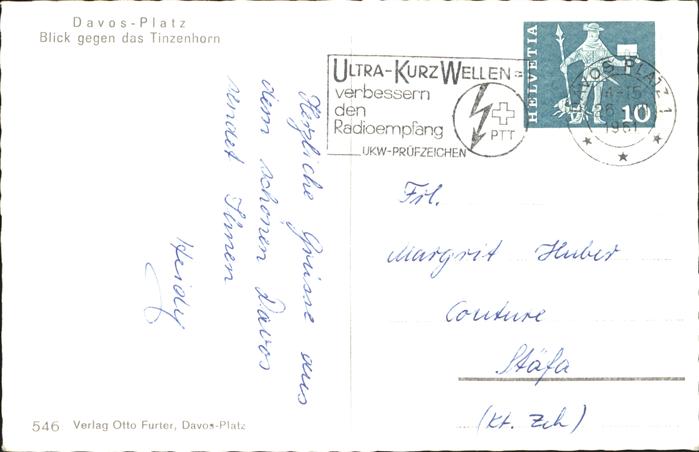 Davos-Platz
Blick gegen das Tinzenhorn
Herzliche Grüsse aus
dem schönen Davos
sendet Ihnen
Heidy
546 Verlag Otto Furter, Davos-Platz
ULTRA-KURZWELLEN
verbessern
den
Radioempfang
UKW-PRÜFZEICHEN
PTT
HELVETIA
10
DAVOS PLATZ 1
14-15
26.
1961
Frl.
Margrit Huber
Couture
Stäfa
(Kt. Zch)